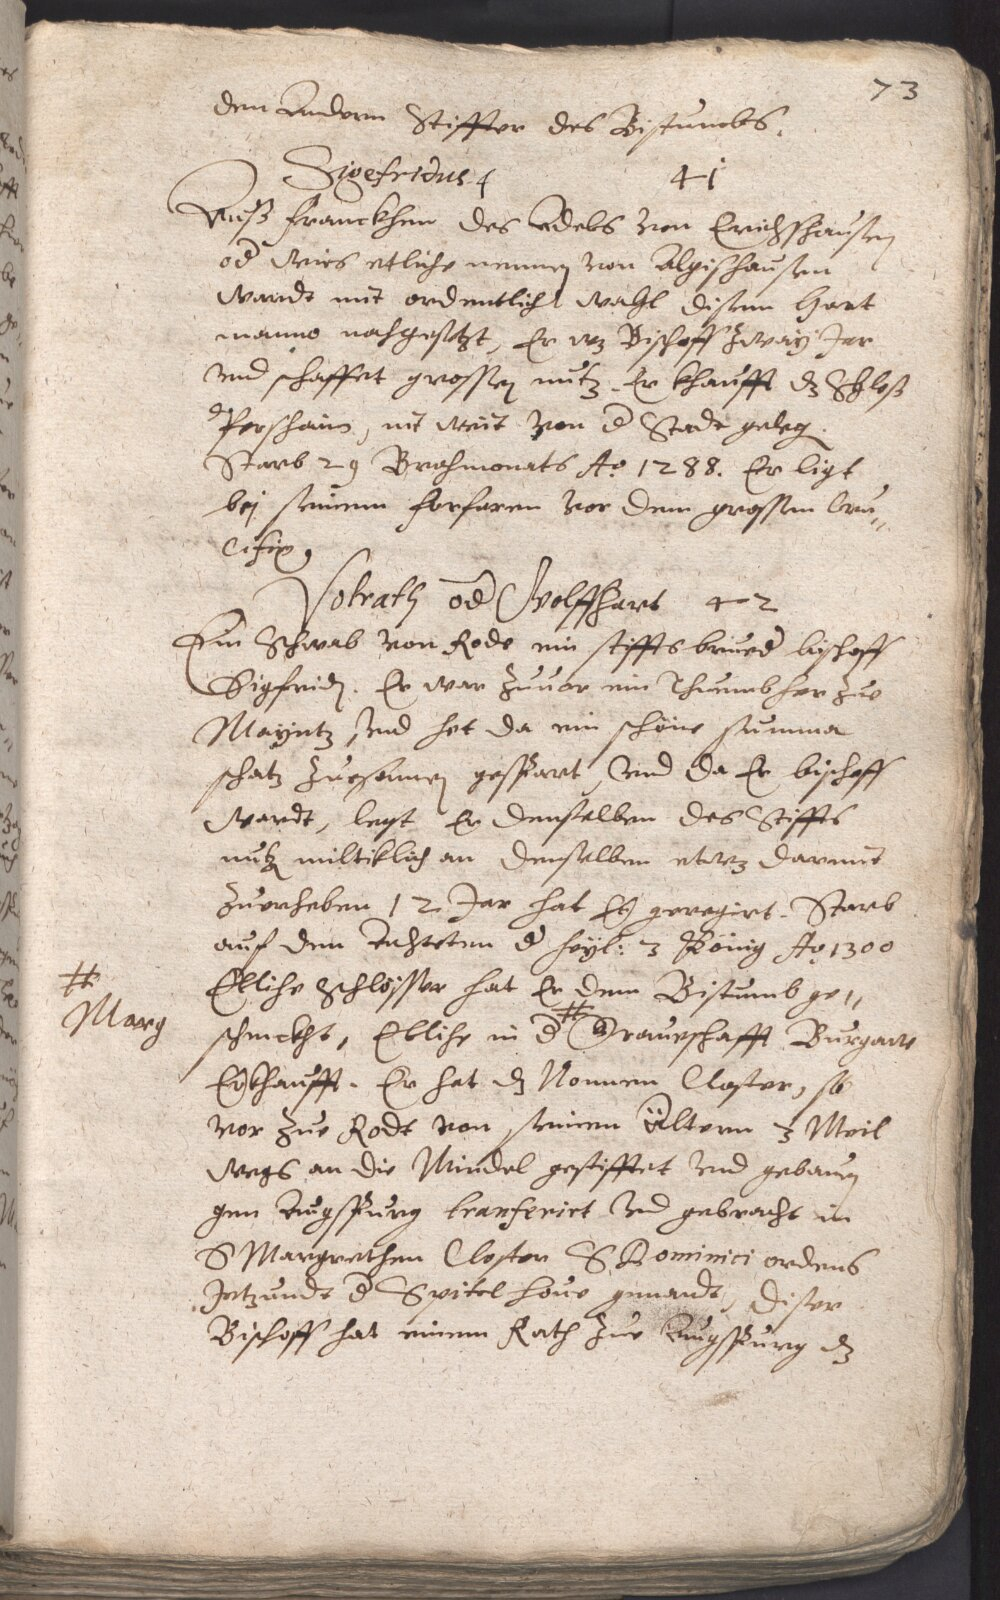 73
den Andern Stiffter des Bistumbs.
Sigefridus 4 41
Auß Franckhen des Adels von Erichshausen
od wies etliche nennen von Algishausen
wardt mit ordentlich wahl disem Hart
manno nachgesetzt, Er wz Bischoff zway Jar
und schaffet grossen nutz. Er khaufft dz Schloß
Pfershaim, nit weit von d Stadt geleg.
Starb 29 Brahmonats Ao 1288. Er ligt
bej seinem forfaren vor dem grossen Cru„
cifix,
Volrath od Wolffhart 42
Ein Schwab von Rode ein stiffts brued bischoff
Sigfridj. Er war zuuor ein Thumbher zue
Mayntz, und het da ein schöne summa
schatz zuesamen gespart, und da Er bischoff
wardt, legt Er denselben des Stiffts
nutz miltiklich an denselben etwz darmit
zuerheben 12 Jar hat Er geregirt. Starb
auf den Achteten d heyl: 3 König Ao 1300
Ettliche Schlösser hat Er dem Bistumb ge„
schenckht, Ettliche in d # Graueschafft Burgaw
# Marg
Erkhaufft. Er hat dz Nonnen Closter, so
vor zue Rodt von seinen Ältern 3 Meil
wegs an die Mindel gestifftet und gebauen
gen Augspurg tranferirt und gebracht in
S Margrethen Closter S Dominici ordens
Jetzundt d Spitel houe genandt, diser
Bischoff hat einem Rath zue Augspurg dz